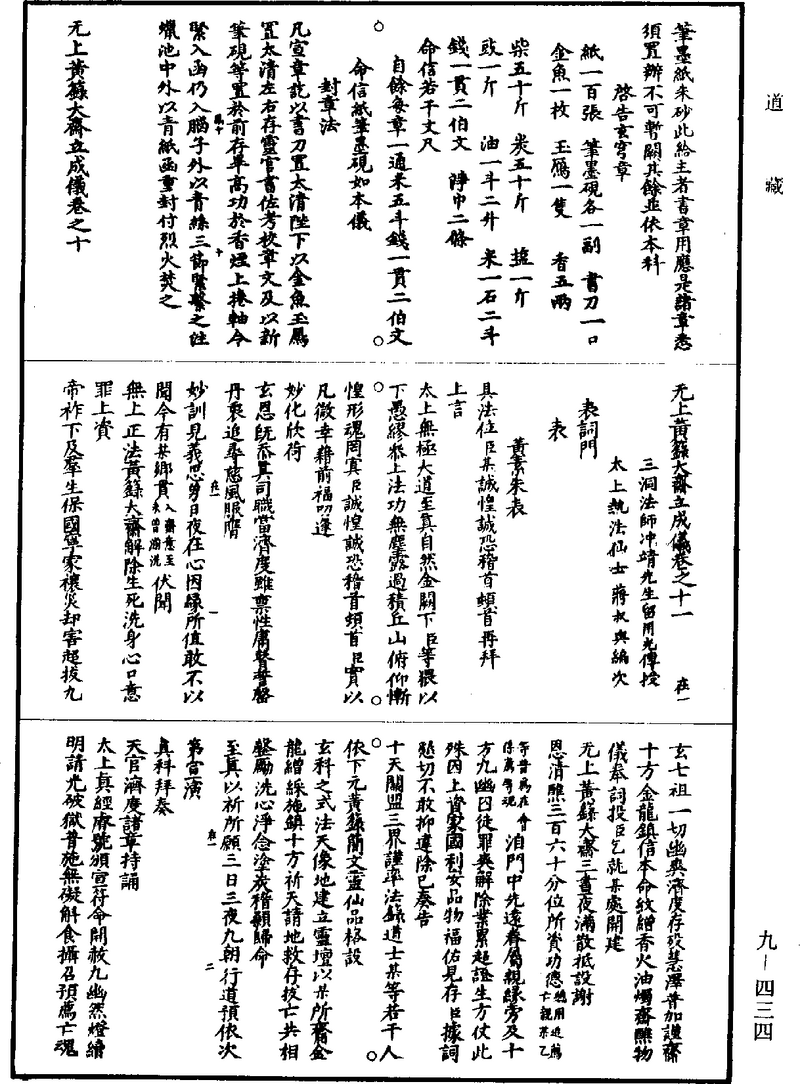 道藏
筆墨紙朱砂此給主者書章用應是諸章悉
須置辦不可暫闕其餘並依本科
啓告玄穹章
紙一百張　筆墨硯各一副　書刀一口
金魚一枚　玉鴈一隻　香五兩
柴五十斤　炭五十斤　鹽一斤
豉一斤　油一斗二升　米一石二斗
錢一貫二伯文　淨巾二條
命信若干丈尺
自餘每章一通米五斗錢一貫二伯文
命信紙筆墨硯如本儀
封章法
凡宣章訖以書刀置太清陛下以金魚玉鴈
置太清左右存靈官書佐考校章文及以新
筆硯等置於前存畢高功於香煙上捲軸令
緊入函仍入腦子外以青絲三節緊繫之注
蠟池中外以青紙函重封付烈火焚之
无上黃籙大齋立成儀卷之十
无上黃籙大齋立成儀卷之十一　在一
三洞法師冲靖先生留用光傳授
太上執法仙士蔣叔輿編次
表詞門
表
黃素朱表
具法位臣某誠惶誠恐稽首頓首再拜
上言
太上無極大道至真自然金闕下臣等猥以
下愚繆忝上法功無塵露過積丘山俯仰慚
惶形魂罔寘臣誠惶誠恐稽首頓首臣實以
凡微幸藉前福叨逢
妙化欣荷
玄恩既忝真司職當濟度雖稟性庸督誓罄
丹衷追尋慈風服膺
妙訓見義思勇日夜在心因緣所值敢不以
聞今有某鄉貫入齋意至未曾濯洗伏聞
無上正法黃籙大齋解除生死洗身心口意
罪上資
帝祚下及羣生保國寧家禳災却害超拔九
玄七祖一切幽爽濟度存歿慧澤普加謹齋
十方金龍鎮信本命紋繒香火油燭齋醮物
儀奉詞投臣乞就某處開建
无上黃籙大齋三晝夜滿散祇設謝
恩清醮三百六十分位所資功德
洎門中先遠眷屬親緣旁及十
方九幽囚徒罪爽解除業累超證生方仗此
殊因上資家國利安品物福佑見存臣據詞
懇切不敢抑違除已奏告
十天關盟三界謹率法籙道士某等若干人
依下元黃籙簡文靈仙品格設
玄科之式法天像地建立靈壇以某所齋金
龍繒綵施鎮十方祈天請地救存拔亡共相
罄勵洗心淨念塗炭稽顙歸命
至真以祈所願三日三夜九朝行道預依次
第宣演
真科拜奏
天官濟度諸章持誦
太上真經齋號頒宣符命開赦九幽然燈續
明請光破獄普施無礙斛食攝召預薦亡魂
九－四三四